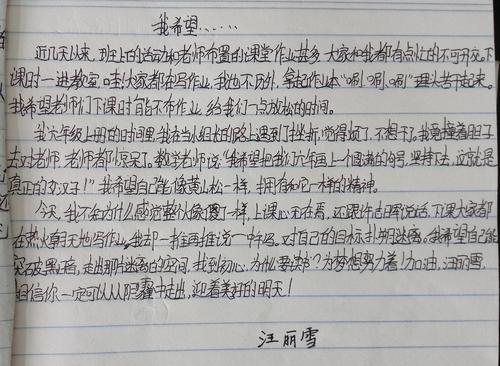 我希望……
近几天以来,班上的活动和老师布置的课堂作业甚多,大家和我都有点忙的不可开交,下
课时一进教室,哇!大家都在写作业,我也不例外,拿起作业本“唰、唰、唰”埋头苦干起来。
我希望老师们下课时有能不布作业,给我们一点放松的时间。
到六年级上册的时间里,我在当小组长的路上遇到了挫折,觉得烦了,不想干了。我竟撞着胆子
去对老师,老师都惊呆了。数学老师说:“我希望把我们六年画上一个圆满的句号,坚持下去,这就是
真正的女汉子!”我希望自己能像黄山松一样,拥有和它一样的精神。
今天,我不知为什么感觉整个像傻了一样,上课心不在焉,还跟许志晖说话,下课大家都
在热火朝天地写作业,我却一推再推说一切写。对自己的目标 迷惑。我希望自己能
突破黑暗,走出那片迷惑的空间,找到初心,为什么要读书?为梦想努力着!加油,汪丽雪,
相信你一定可以从阴霾中走出,迎着美好的明天!
汪丽雪